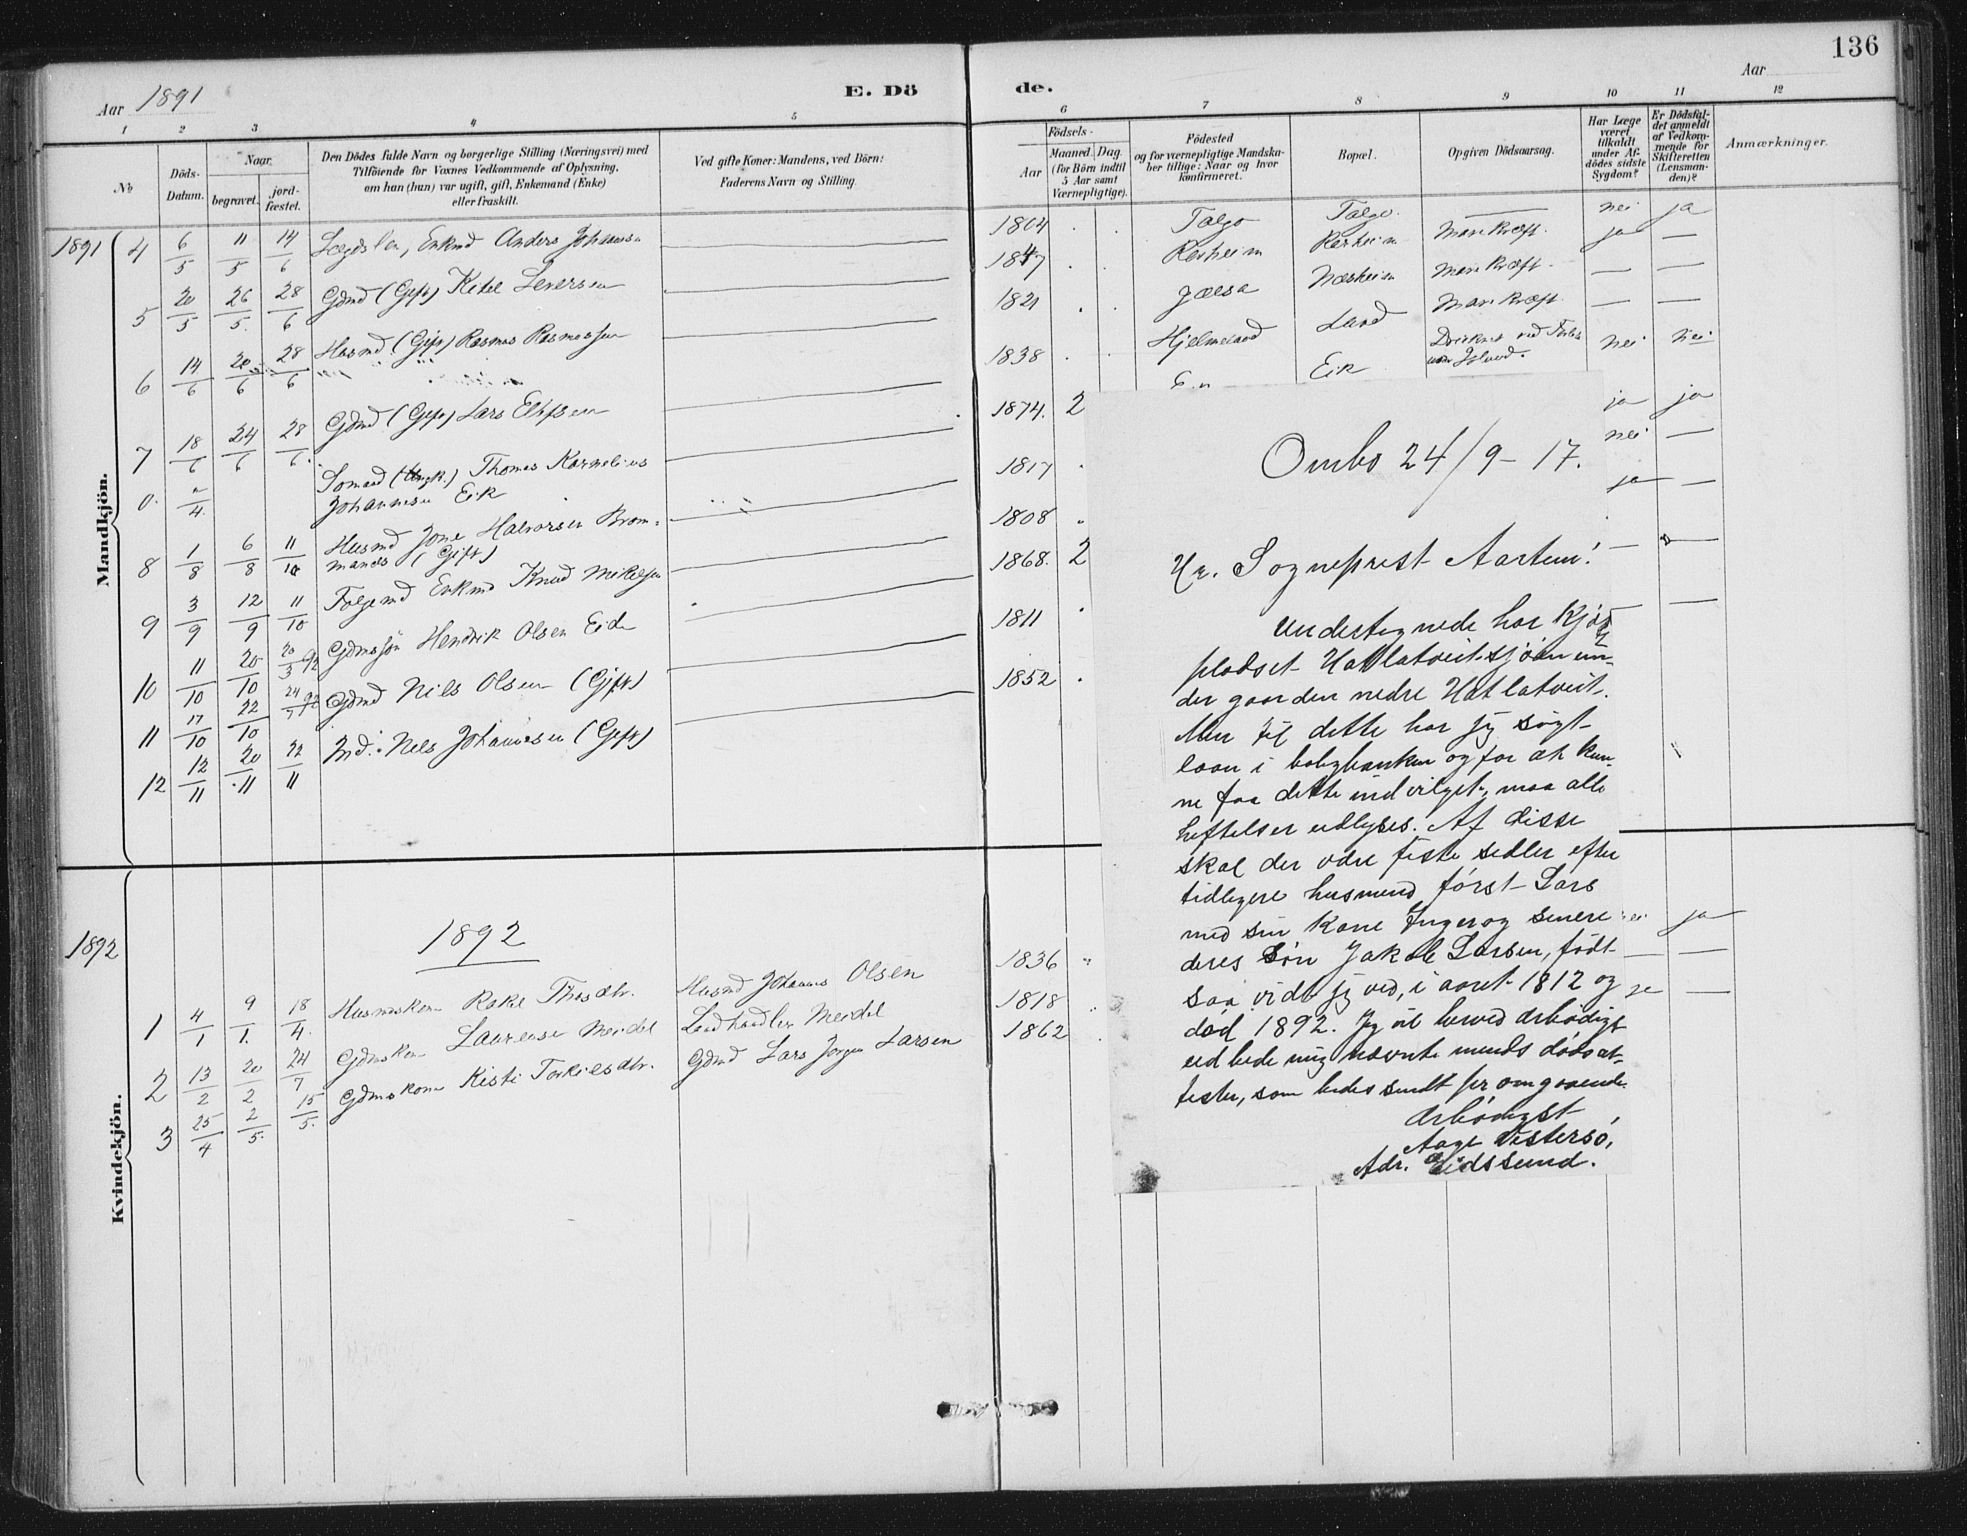 136
Aar 1891
E. Dö
de.
Aar
1
2
3
4
5
6
7
8
9
10
11
12
No
Döds-
Datum.
Naar
begravet.
jord-
fæstet.
Den Dödes fulde Navn og borgerlige Stilling (Næringsvei) med
Tilföiende for Voxnes Vedkommende af Oplysning,
om han (hun) var ugift, gift, Enkemand (Enke)
eller fraskilt.
Ved gifte Koner: Mandens, ved Börn:
Faderens Navn og Stilling.
Födsels-
Aar
Maaned. Dag.
(for Börn indtil
5 Aar samt
Værnepligtige).
Födested
og for værnepligtige Mandska-
ber tillige: Naar og hvor
konfirmeret.
Bopæl.
Opgiven Dödsaarsag.
Har Læge
været
tilkaldt
under Af-
dödes sidste
Sygdom?
Er Dödsfal-
det anmeldt
af Vedkom-
mende for
Skifteretten
(Lensman-
den)?
Anmærkninger.
Mandkjön.
1891 4 6/5 11/5 14/6 Lægdslem, Enkmd Anders Johannesen 1804 Talgo Talgo nei ja
5 20/5 26/5 28/6 Gdmd (Gift) Ketel Seversen 1847 ja —
6 14/6 20/6 28/6 Husmd (Gift) Rasmus Rasmussen 1821 Jælsa Næsheim — —
7 18/6 24/6 28/6 Gdmd (Gift) Lars Ellefsen Hjelmeland Land — —
0. 2/4 Sømand (Ungk.) Thomas Kornelius
Johannesen Eik 1838 Eik nei nei
8 1/8 6/8 11/10 Husmd Jone Halvorsen Brom-
manes (Gift) 1874. 2 ja ja
9 3/9 12/9 11/10 Følgemd Enkmd Knud Mikelsen 1817 nei —
10 11/10 20/10 20/3 92 Gdmssøn Hendrik Olsen Eide 1808 ja —
11 17/10 22/10 24/7 92 Gdmd Nils Olsen (Gift) 1868. 2 — —
12 12/11 20/11 22/11 Ind. Nels Johannesen (Gift) 1811 —
1852
Kvindekjön.
1892
1892
1 4/1 9/1. 18/4. Husmskone Rakel Thosdtr. Husmd Johannes Olsen 1836 ja
2 13/2 20/2 24/7 Gdmskone Laurense Meidel Landhandler Meidel 1818 — —
3 25/4 2/5. 15/5. Gdmskone Kisti Torkielsdtr. Gdmd Lars Jørgen Larsen 1862 ja —
Ombo 24/9-17.
Hr. Sogneprest Aartun!
Undertegnede har kjøpt
pladset Hatlatveitsjøen un-
der gaarden nedre Hatlatveit.
Men til dette har jeg søgt
laan i boligbanken og for at kun-
ne faa dette indvilget, maa alle
heftelser udlyses. Af disse
skal der være feste sedler efter
tidligere husmend først Lars
med sin kone Inger og senere
deres Søn Jakob Larsen, født
saa vidt jeg ved, i aaret 1812 og
død 1892. Jeg vil herved ærbødigst
udbede mig nævnte mends dødsat-
tester, som bedes sendt per omgaaende.
Ærbødigst
Aage Vestersø,
Adr. Eidssund.